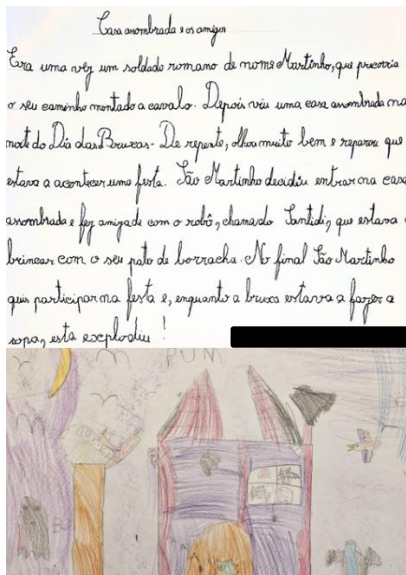 Casa assombrada e os amigos
Era uma vez um soldado romano de nome Martinho, que percorria
o seu caminho montado a cavalo. Depois viu uma casa assombrada na
noite do Dia das Bruxas. De repente, olhou muito bem e reparou que
estava a acontecer uma festa. São Martinho decidiu entrar na casa
assombrada e fez amizade com o robô, chamado Santidi, que estava a
brincar com o seu pato de borracha. No final São Martinho
quis participar na festa e, enquanto a bruxa estava a fazer a
sopa, esta explodiu!
PUM